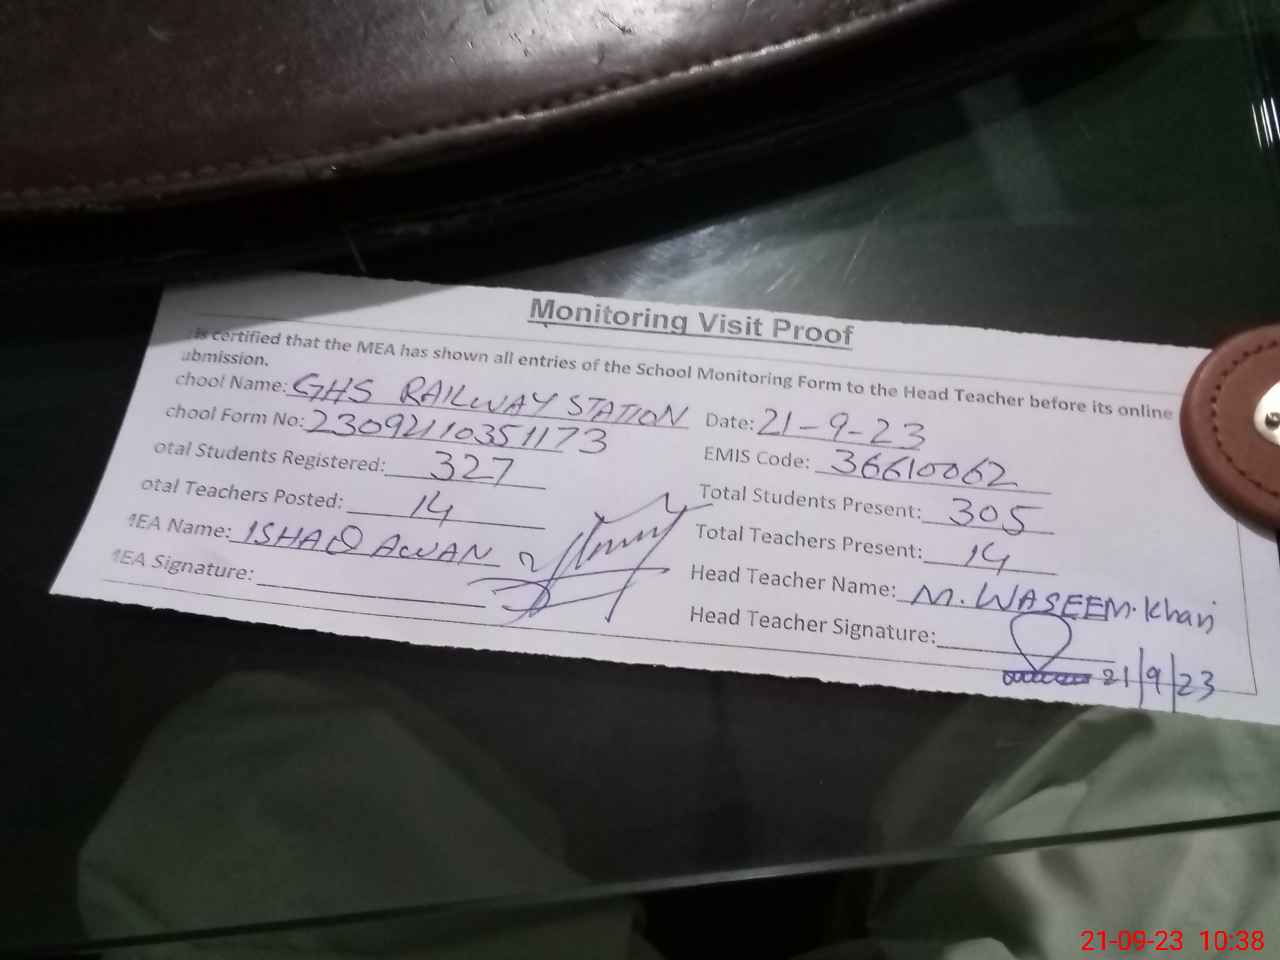 Monitoring Visit Proof
is certified that the MEA has shown all entries of the School Monitoring Form to the Head Teacher before its online
ubmission.
chool Name: GHS RAILWAY STATION Date: 21-9-23
chool Form No: 23092110351173 EMIS Code: 36610062
otal Students Registered: 327 Total Students Present: 305
otal Teachers Posted: 14 Total Teachers Present: 14
MEA Name: ISHAQ AWAN Head Teacher Name: M. WASEEM. Khan
MEA Signature: Head Teacher Signature:
21/9/23
21-09-23 10:38